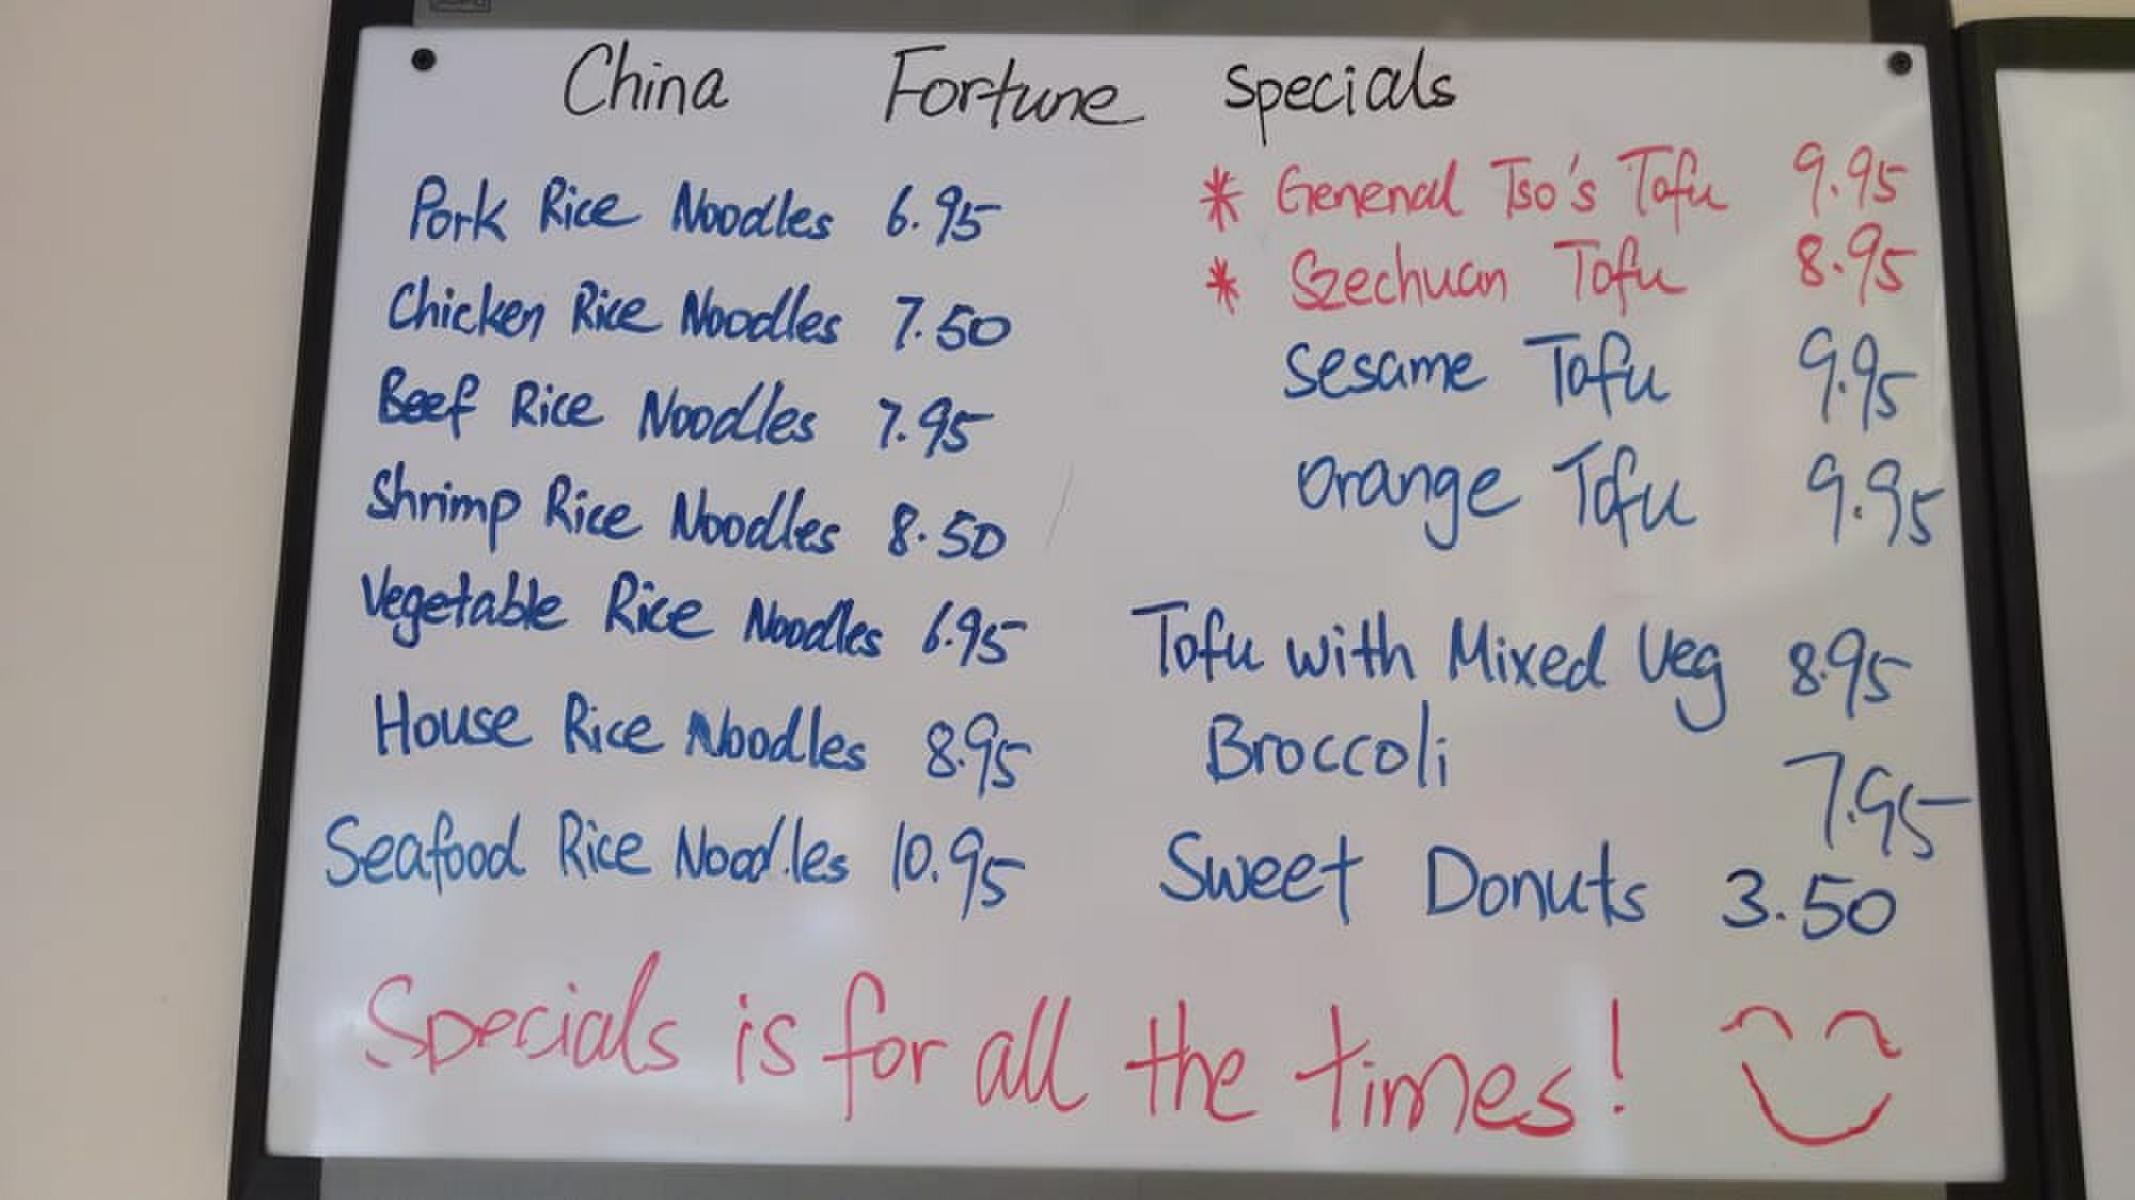 China Fortune Specials
Pork Rice Noodles 6.95
Chicken Rice Noodles 7.50
Beef Rice Noodles 7.95
Shrimp Rice Noodles 8.50
Vegetable Rice Noodles 6.95
House Rice Noodles 8.95
Seafood Rice Noodles 10.95
* General Tso's Tofu 9.95
* Szechuan Tofu 8.95
Sesame Tofu 9.95
Orange Tofu 9.95
Tofu with Mixed Veg 8.95
Broccoli 7.95
Sweet Donuts 3.50
Specials is for all the times!